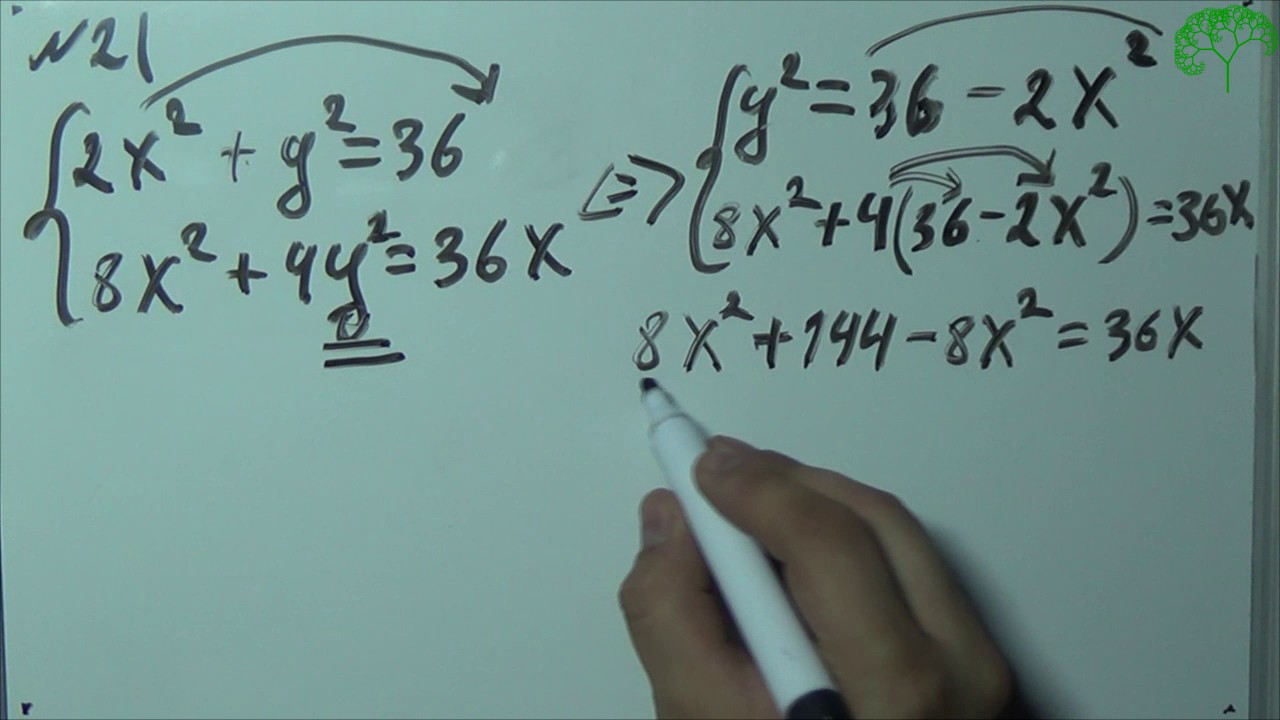 №21
2x² + y² = 36
8x² + 4y² = 36x
<=>
y² = 36 - 2x²
8x² + 4(36 - 2x²) = 36x
8x² + 144 - 8x² = 36x